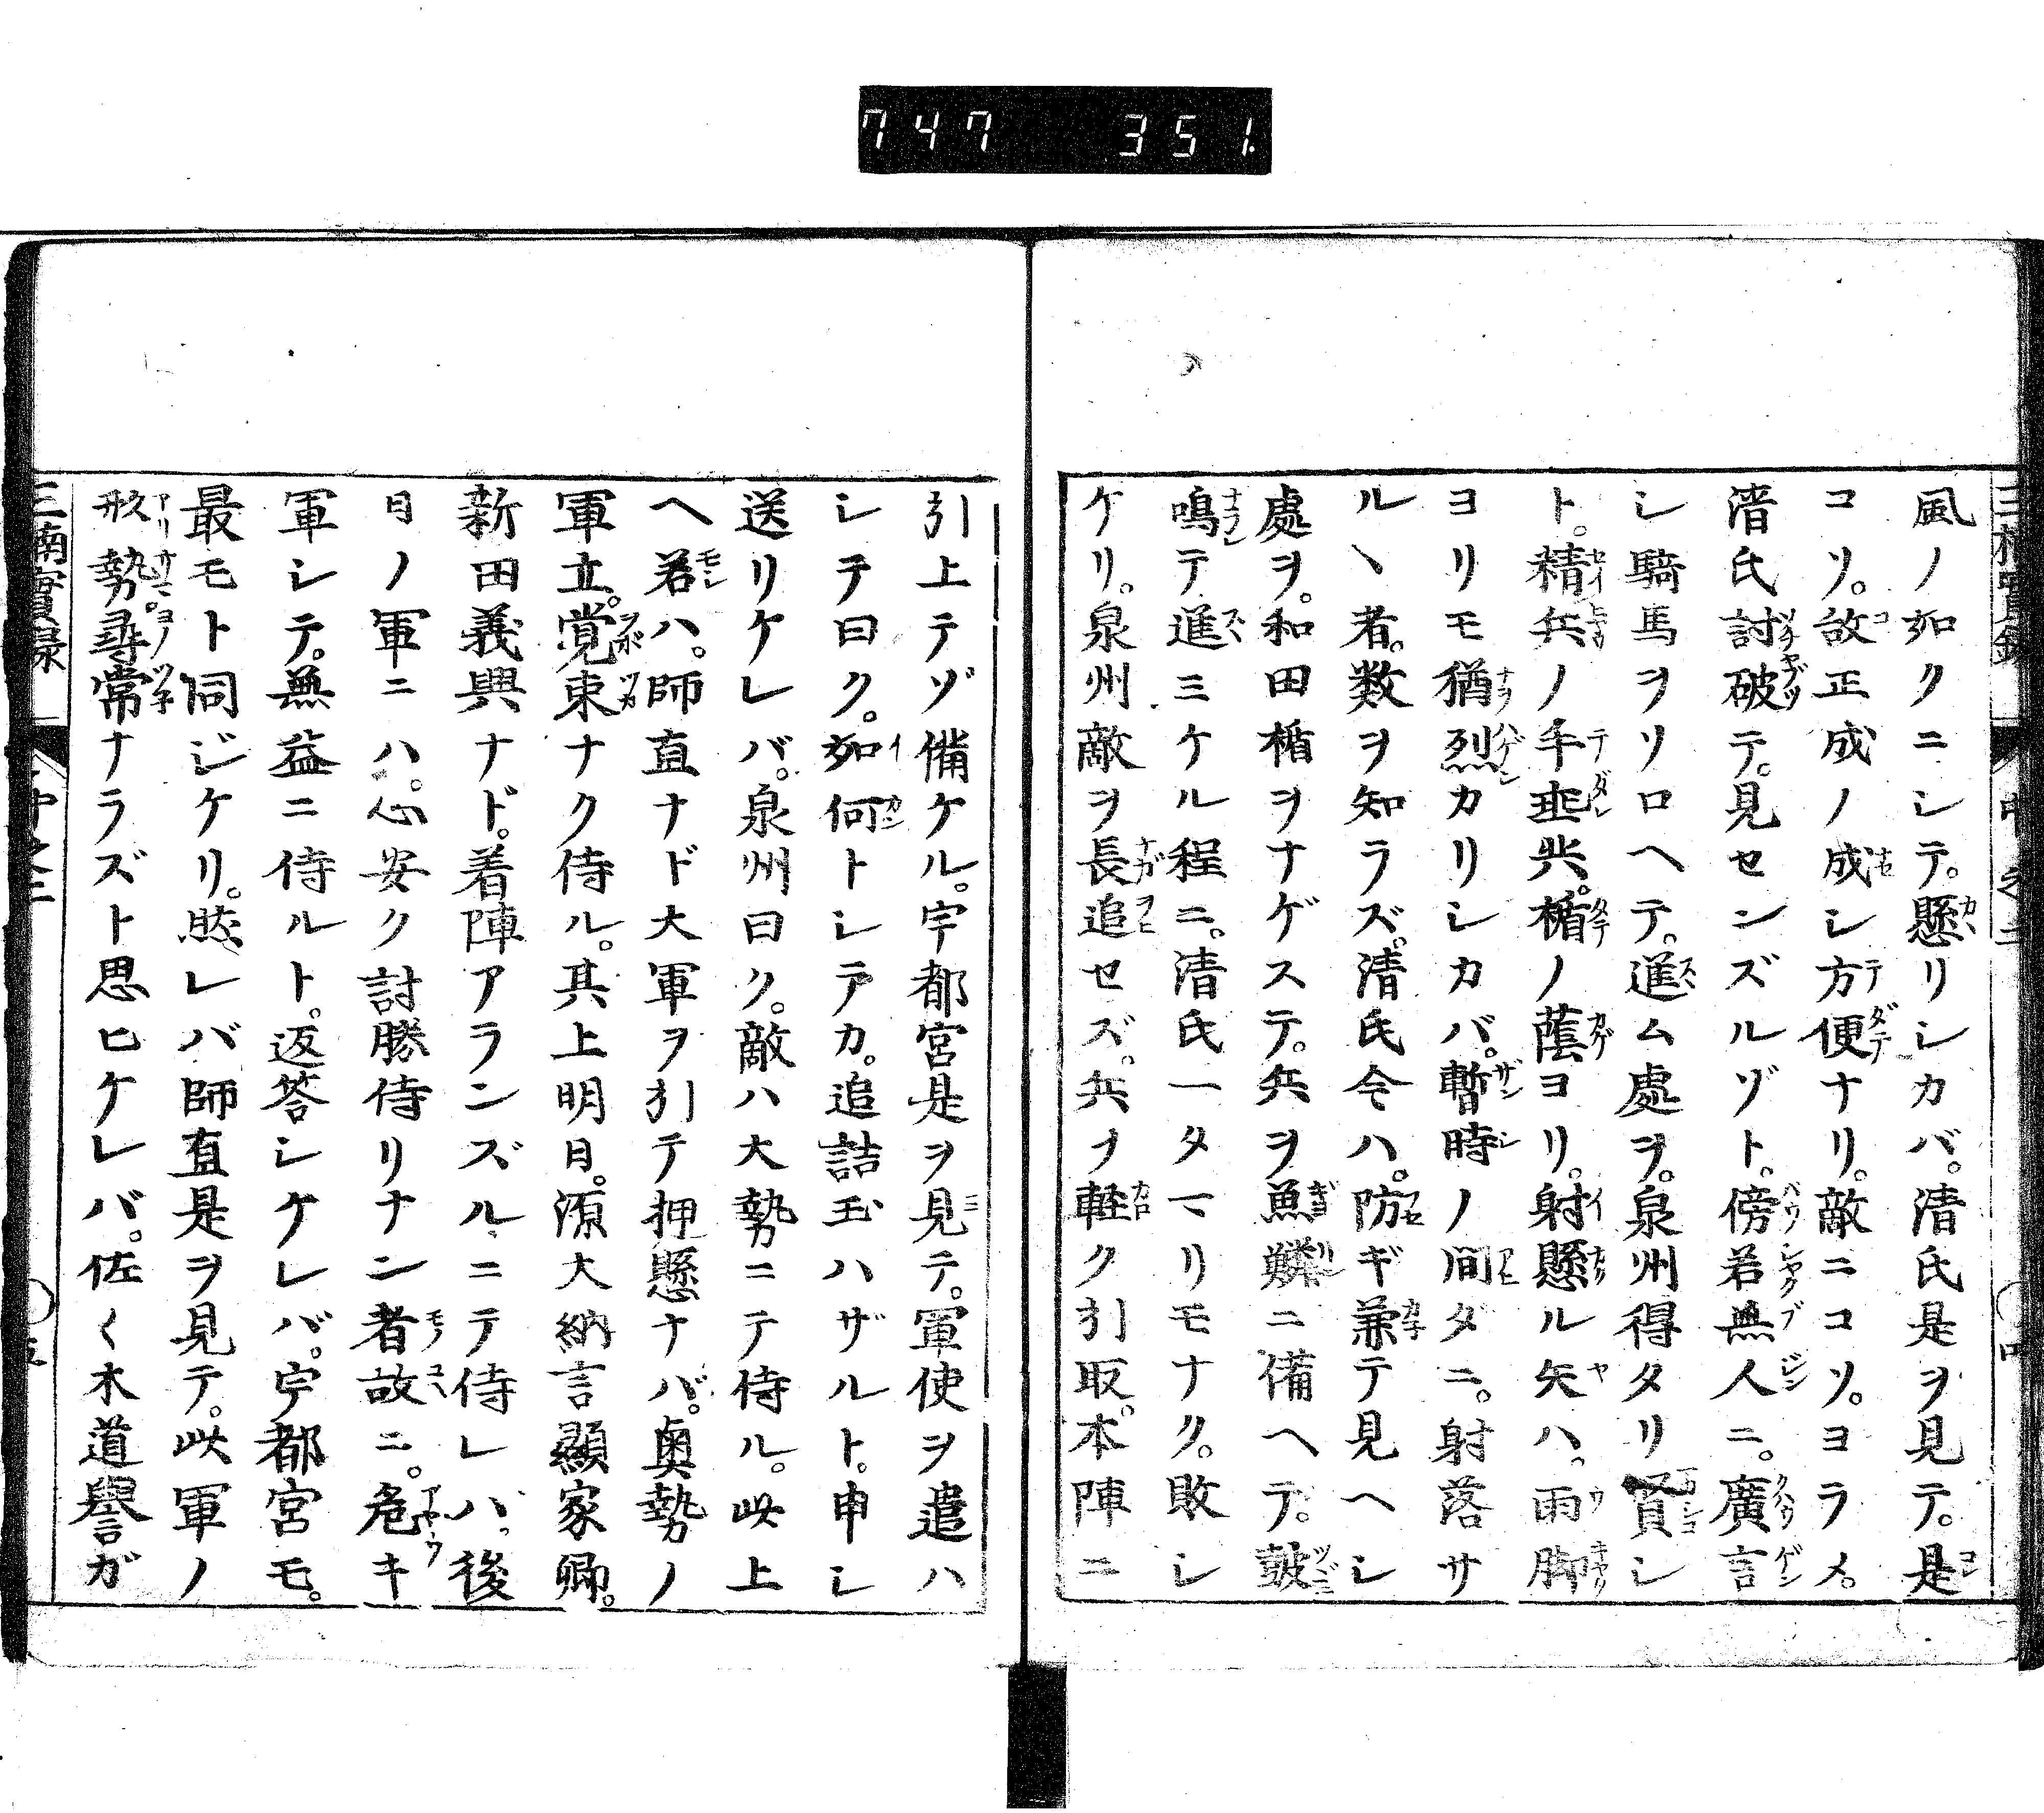 747 351
風ノ如クニシテ。懸リシカバ。清氏是ヲ見テ。是
コソ。故正成ノ成シ方便ナリ。敵ニコソ。ヨラメ。
清氏討破テ。見センズルゾト。傍若無人ニ。廣言
シ騎馬ヲソロヘテ。進ム處ヲ。泉州得タリ賢シ
ト。精兵ノ手垂共。楯ノ蔭ヨリ。射懸ル矢ハ。雨脚
ヨリモ猶烈カリシカバ。暫時ノ間ダニ。射落サ
ルヽ者。数ヲ知ラズ。清氏今ハ。防ギ兼テ見ヘシ
處ヲ。和田楯ヲナゲステ。兵ヲ魚鱗ニ備ヘテ。鼓
鳴テ進ミケル程ニ。清氏一タマリモナク。敗シ
ケリ。泉州敵ヲ長追セズ。兵ヲ軽ク引取。本陣ニ
引上テゾ備ケル。宇都宮是ヲ見テ。軍使ヲ遣ハ
シテ曰ク。如何トシテカ。追詰玉ハザルト。申シ
送リケレバ。泉州曰ク。敵ハ大勢ニテ侍ル。此上
ヘ若ハ。師直ナド大軍ヲ引テ押懸ナバ。奥勢ノ
軍立。覚束ナク侍ル。其上明日。源大納言顯家卿。
新田義興ナド。着陣アランズルニテ侍レバ。後
日ノ軍ニハ。心安ク討勝侍リナン者故ニ。危キ
軍シテ。無益ニ侍ルト。返答シケレバ。宇都宮モ。
最モト同ジケリ。然レバ師直是ヲ見テ。此軍ノ
形勢。尋常ナラズト思ヒケレバ。佐々木道譽ガ